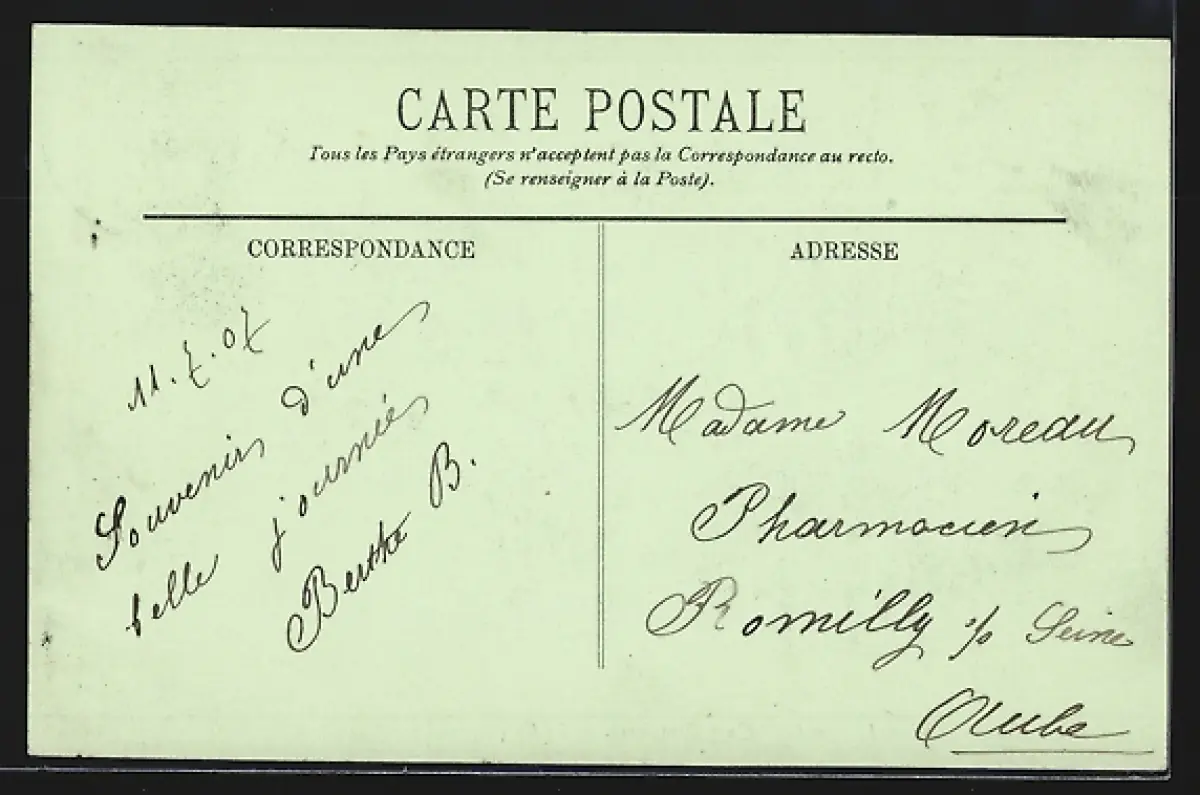 CARTE POSTALE
Tous les Pays étrangers n'acceptent pas la Correspondance au recto.
(Se renseigner à la Poste).
CORRESPONDANCE
11.7.07
Souvenir d'une
belle journée
Berthe B.
ADRESSE
Madame Moreau
Pharmacien
Romilly s/ Seine
Aube